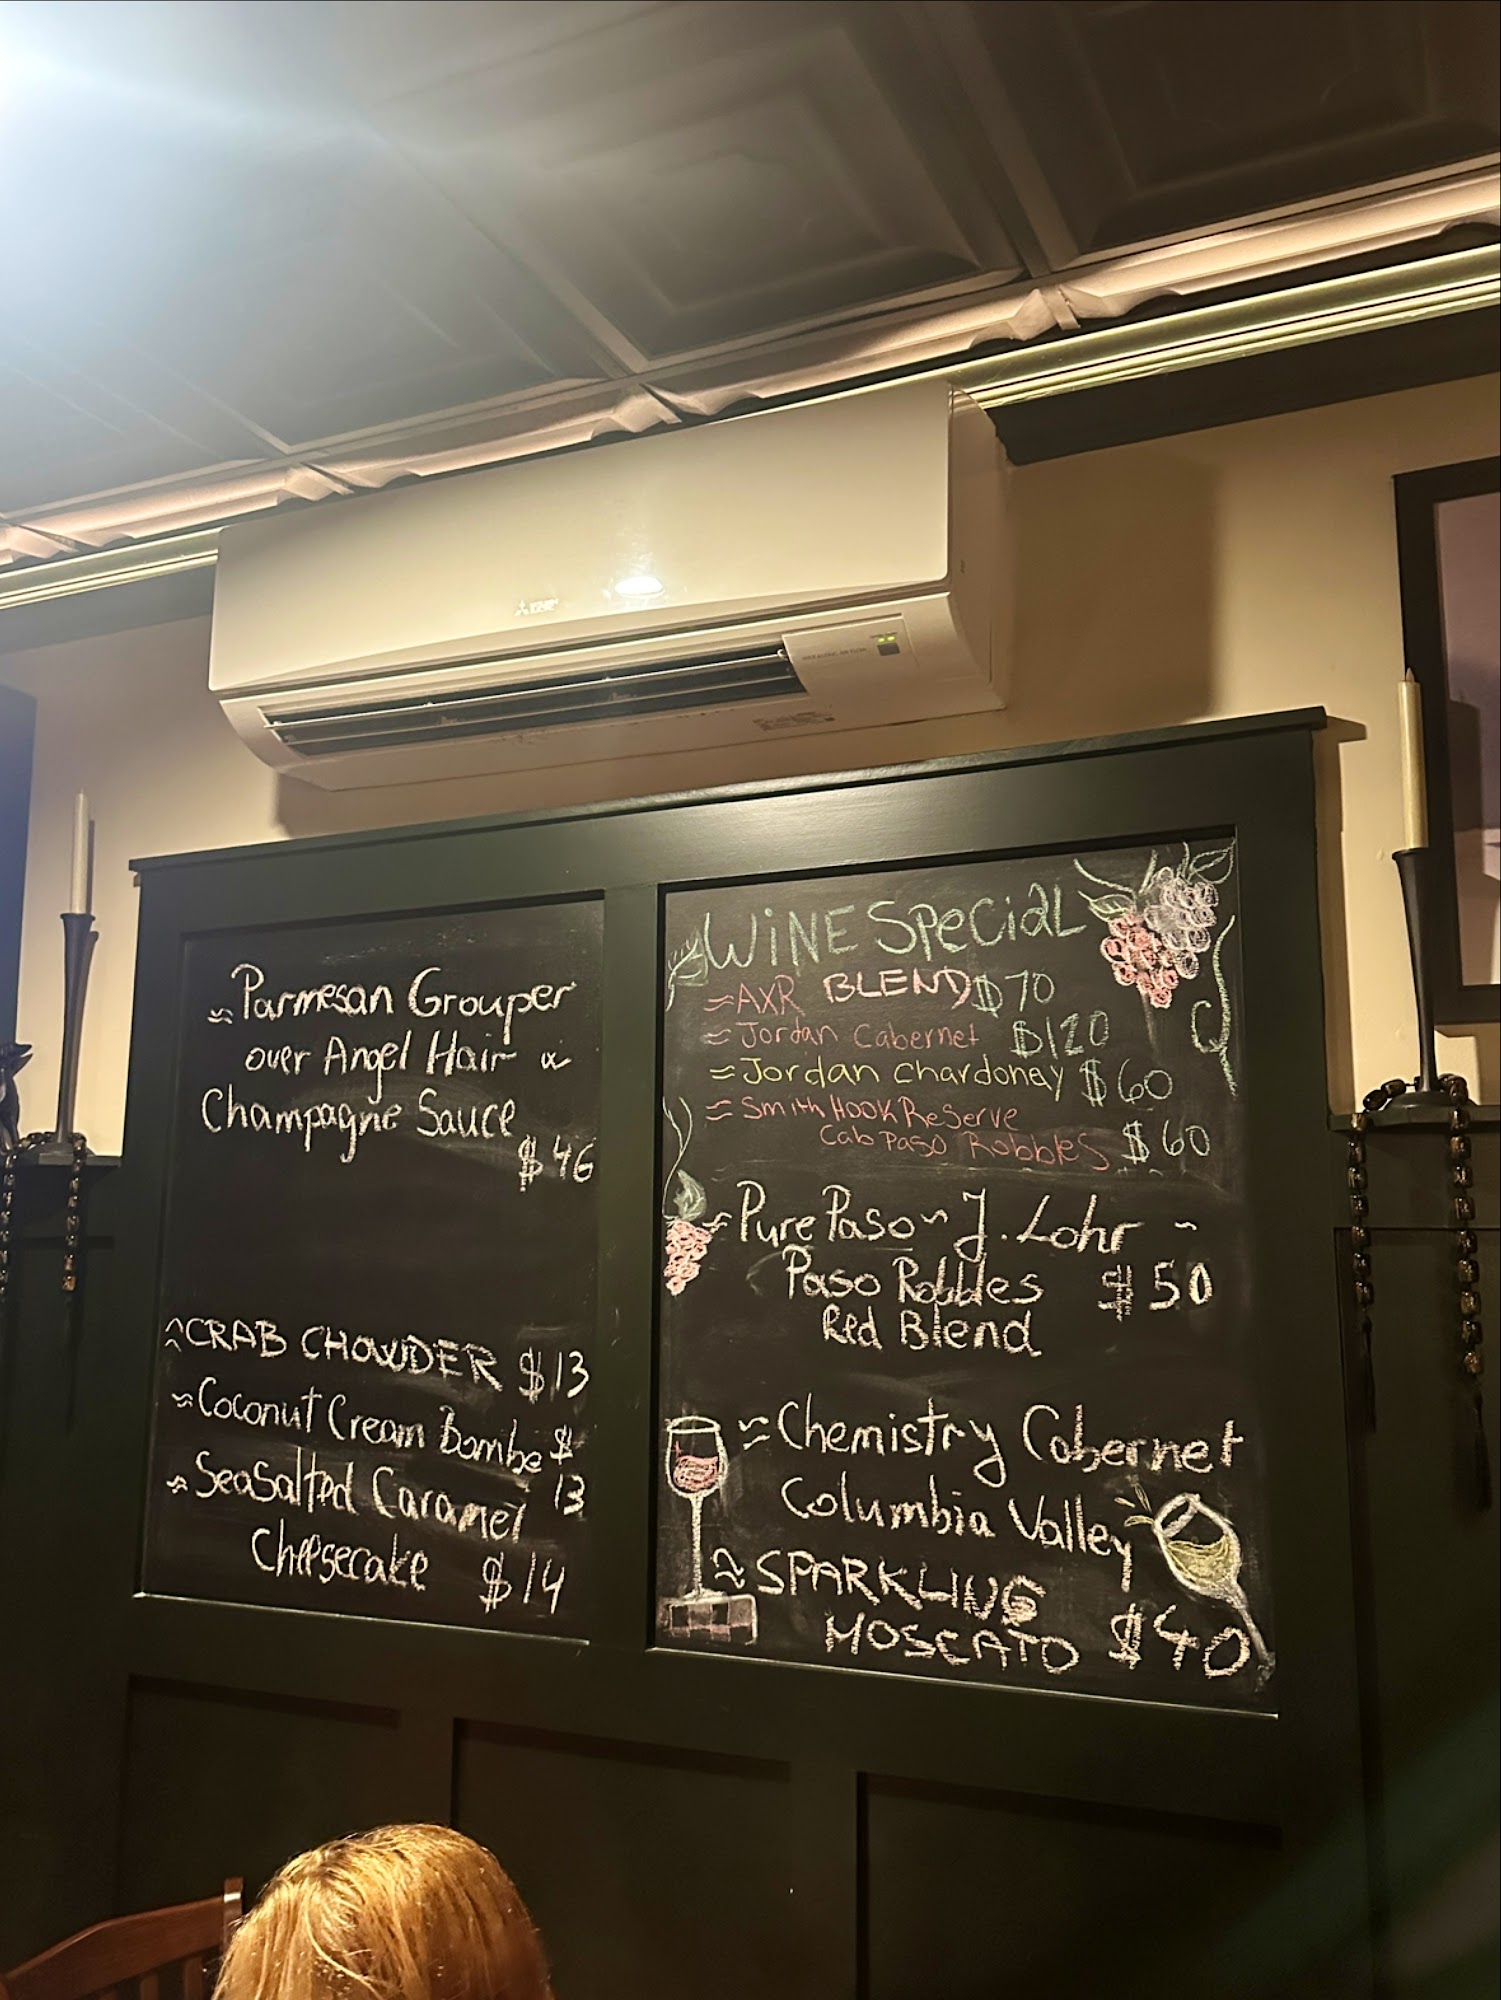 Parmesan Grouper
over Angel Hair w
Champagne Sauce
$46
CRAB CHOWDER $13
Coconut Cream Bombe $
13
SeaSalted Caramel
Cheesecake $14
WiNE SPeCiaL
AXR BLEND $70
Jordan Cabernet $120
Jordan Chardonay $60
Smith HOOK ReServe
Cab Paso Robbles $60
Pure Paso ~ J. Lohr ~
Paso Robbles $50
Red Blend
Chemistry Cabernet
Columbia Valley
SPARKLING
MOSCATO $40